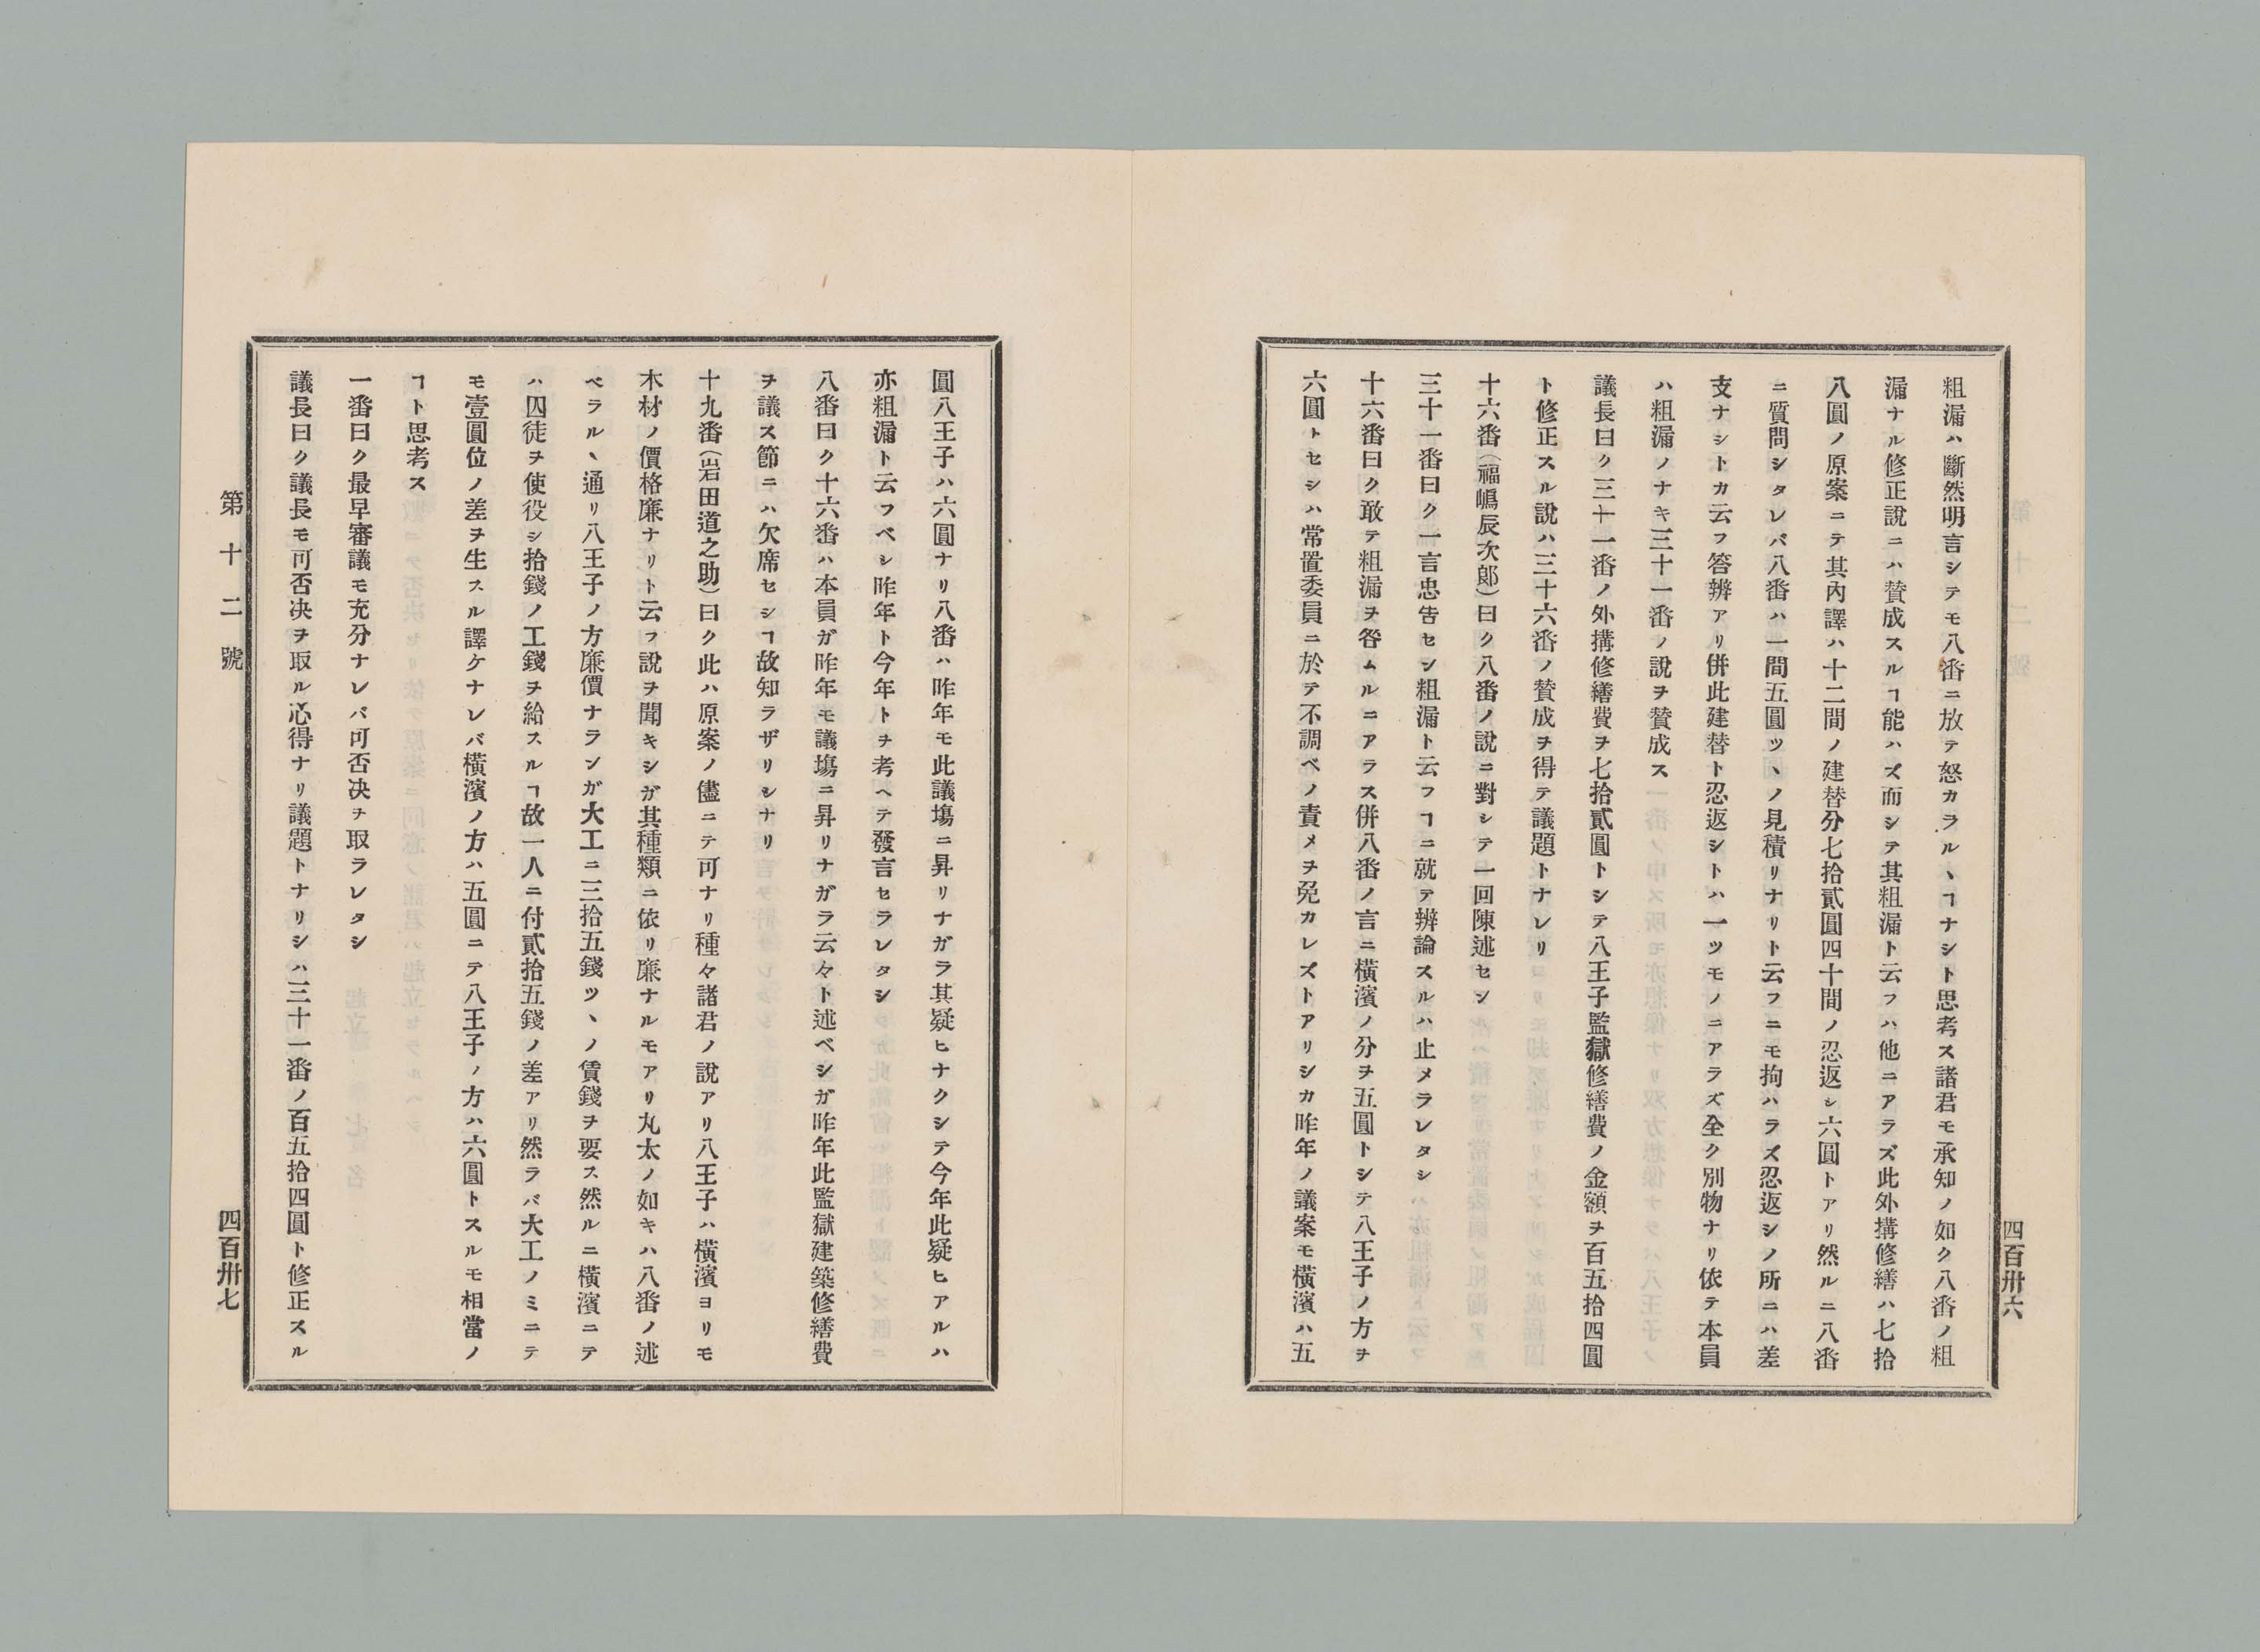 粗漏ハ斷然明言シテモ八番ニ放テ怒カラルヽヿナシト思考ス諸君モ承知ノ如ク八番ノ粗
漏ナル修正說ニハ賛成スルヿ能ハズ而シテ其粗漏ト云フハ他ニアラズ此外搆修繕ハ七拾
八圓ノ原案ニテ其內譯ハ十二間ノ建替分七拾貳圓四十間ノ忍返シ六圓トアリ然ルニ八番
ニ質問シタレバ八番ハ一間五圓ツヽノ見積リナリト云フニモ拘ハラズ忍返シノ所ニハ差
支ナシトカ云フ答辨アリ併此建替ト忍返シトハ一ツモノニアラズ全ク別物ナリ依テ本員
ハ粗漏ノナキ三十一番ノ說ヲ賛成ス
議長曰ク三十一番ノ外搆修繕費ヲ七拾貳圓トシテ八王子監獄修繕費ノ金額ヲ百五拾四圓
ト修正スル說ハ三十六番ノ賛成ヲ得テ議題トナレリ
十六番（福嶋辰次郞）曰ク八番ノ說ニ對シテ一回陳述セン
三十一番曰ク一言忠告セン粗漏ト云フヿニ就テ辨論スルハ止メラレタシ
十六番曰ク敢テ粗漏ヲ咎ムルニアラス併八番ノ言ニ橫濱ノ分ヲ五圓トシテ八王子ノ方ヲ
六圓トセシハ常置委員ニ於テ不調ベノ責メヲ免カレズトアリシカ昨年ノ議案モ橫濱ハ五
四百卅六
圓八王子ハ六圓ナリ八番ハ昨年モ此議塲ニ昇リナガラ其疑ヒナクシテ今年此疑ヒアルハ
亦粗漏ト云フベシ昨年ト今年トヲ考ヘテ發言セラレタシ
八番曰ク十六番ハ本員ガ昨年モ議塲ニ昇リナガラ云々ト述ベシガ昨年此監獄建築修繕費
ヲ議ス節ニハ欠席セシヿ故知ラザリシナリ
十九番（岩田道之助）曰ク此ハ原案ノ儘ニテ可ナリ種々諸君ノ說アリ八王子ハ橫濱ヨリモ
木材ノ價格廉ナリト云フ說ヲ聞キシガ其種類ニ依リ廉ナルモアリ丸太ノ如キハ八番ノ述
ベラルヽ通リ八王子ノ方廉價ナランガ大工ニ三拾五錢ツヽノ賃錢ヲ要ス然ルニ橫濱ニテ
ハ囚徒ヲ使役シ拾錢ノ工錢ヲ給スルヿ故一人ニ付貳拾五錢ノ差アリ然ラバ大工ノミニテ
モ壹圓位ノ差ヲ生スル譯ケナレバ橫濱ノ方ハ五圓ニテ八王子ノ方ハ六圓トスルモ相當ノ
ヿト思考ス
一番曰ク最早審議モ充分ナレバ可否決ヲ取ラレタシ
議長曰ク議長モ可否決ヲ取ル心得ナリ議題トナリシハ三十一番ノ百五拾四圓ト修正スル
第十二號
四百卅七